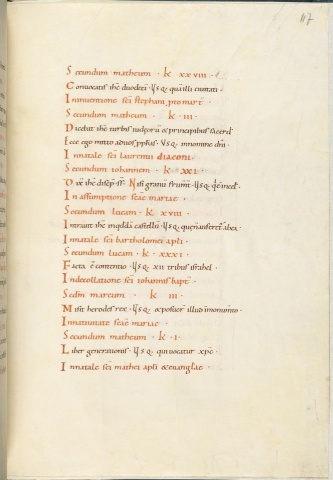 117
Secundum matheum · k̄ xxviii ·
Conuocatis ihc̄ duodeci · Usq; quasi ciuitati ·
Inuuentione sc̄i stephani pto mart̄
Secundum matheum · k̄ iii ·
Dicebat ihc̄ turbis iudeorū & principibus sacerd̄
Ecce ego mitto ad uos pphas · Usq; in nomine dn̄i ·
In natale sc̄i laurentii diaconi ·
Secundum iohannem · k̄ xxi ·
Dix̄ ihc̄ discip̄ · Nisi granū frum̄ · Usq;
In assumptione sc̄ae mariae ·
Secundum lucam · k̄ xviii ·
Intrauit ihc̄ in qddā castellū · Usq; que n̄ auferet̄ ab ea ·
In natale sc̄i bartholomei apl̄i
Secundum lucam · k̄ xxxi ·
Facta ē contentio · Usq; xii tribus israhel ·
In decollatione sc̄i iohannis bapt̄
Scd̄m marcum · k̄ iii ·
Misit herodes rex · Usq; & posuer̄ illud in monum̄ ·
In natiuitate sc̄ae mariae ·
Secundum matheum · k̄ i ·
Liber generationis · Usq; qui uocatur xpc̄ ·
In natale sc̄i mathei apl̄i & euangl̄ae ·